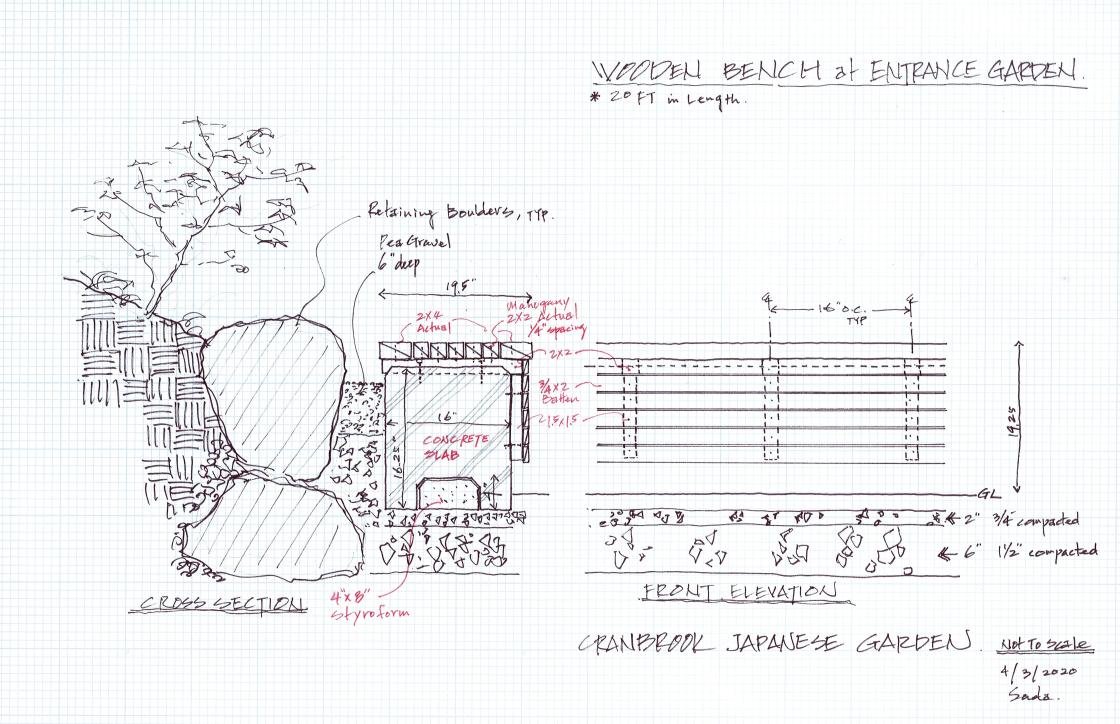 WOODEN BENCH at ENTRANCE GARDEN.
* 20 FT in Length.
Retaining Boulders, TYP.
Pea Gravel
6" deep
19.5"
2x4
Actual
Mahogany
2x2 Actual
1/4" spacing
2x2
3/4 x 2
Batten
1.5 x 1.5
16"
CONCRETE
SLAB
16.25
4" x 8"
Styroform
CROSS SECTION
℄
℄
16" O.C.
TYP
19.25
GL
2" 3/4" compacted
6" 1 1/2" compacted
FRONT ELEVATION
CRANBROOK JAPANESE GARDEN.
NOT TO Scale
4/3/2020
Sada.